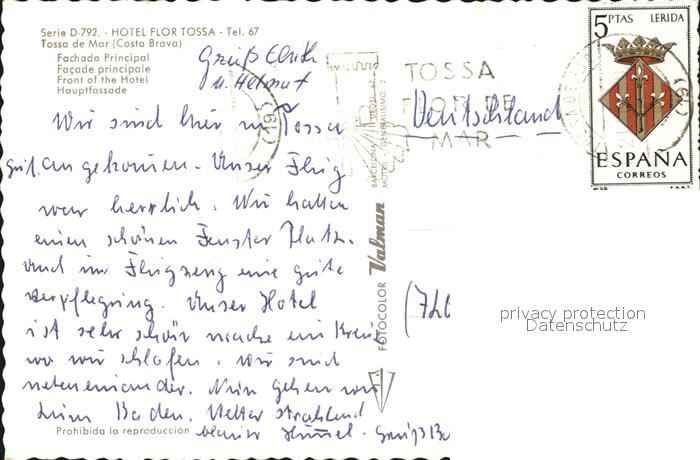 Serie D-792. - HOTEL FLOR TOSSA - Tel. 67
Tossa de Mar (Costa Brava)
Fachada Principal
Façade principale
Front of the Hotel
Hauptfassade
Gruß Eluth
u. Helmut
Wir sind hier in Tossa
gut angekommen. Unser Flug
war herrlich. Wir hatten
einen schönen Fenster Platz.
Und im Flugzeug eine gute
Verpflegung. Unser Hotel
ist sehr schön mache ein Kreuz
wo wir schlafen. Wir sind
nebeneinander. Nun gehen wir
zum Baden. Wetter strahlend
blauer Himmel. Gruß
Prohibida la reproducción
TOSSA
FLOR DE
MAR
Deutschland
5 PTAS LERIDA
ESPAÑA
CORREOS
F.N.M.T.
FOTOCOLOR Valman
BARCELONA
MOTRIL - GENERALISIMO, 2
(720
privacy protection
Datenschutz